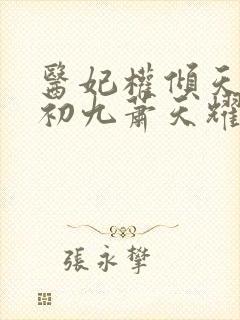 醫妃權傾天
初九蕭天耀
張永攀